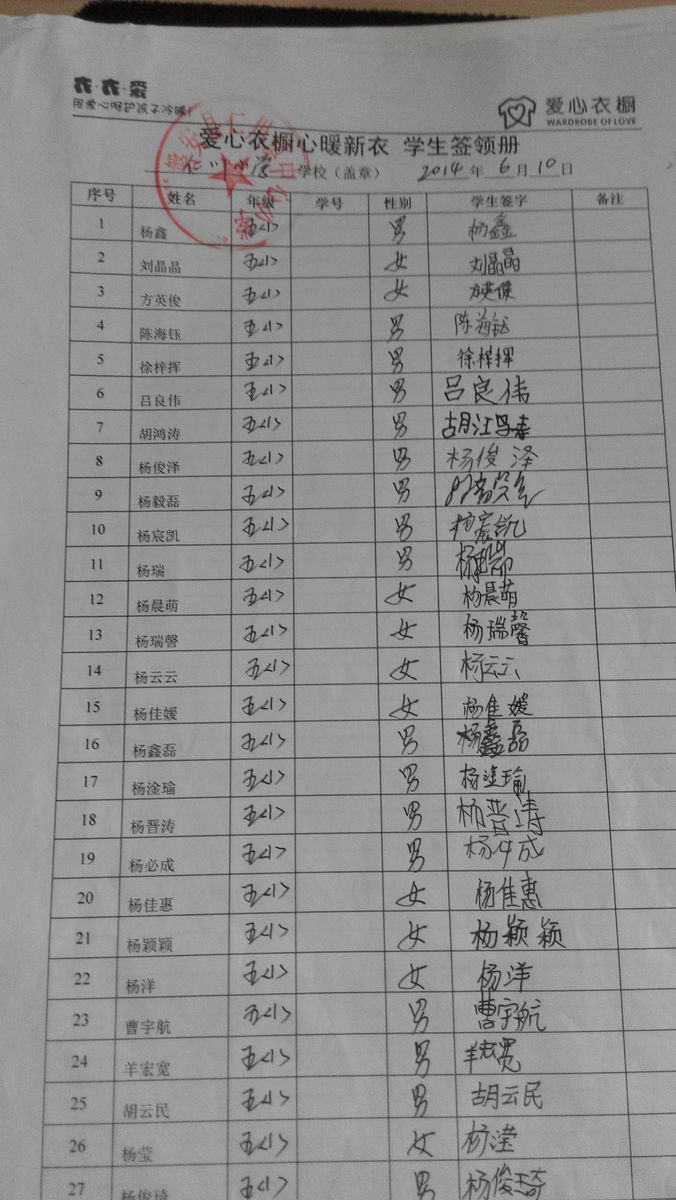 衣·衣·爱
用爱心呵护孩子冷暖!
爱心衣橱
WARDROBE OF LOVE
爱心衣橱心暖新衣 学生签领册
小学 学校（盖章） 2014年6月10日
序号 姓名 年级 学号 性别 学生签字 备注
1 杨鑫 五<1> 男 杨鑫
2 刘晶晶 五<1> 女 刘晶晶
3 方英俊 五<1> 女 方英俊
4 陈海钰 五<1> 男 陈海钰
5 徐梓挥 五<1> 男 徐梓挥
6 吕良伟 五<1> 男 吕良伟
7 胡鸿涛 五<1> 男 胡鸿涛
8 杨俊泽 五<1> 男 杨俊泽
9 杨毅磊 五<1> 男
10 杨宸凯 五<1> 男 杨宸凯
11 杨瑞 五<1> 男 杨瑞
12 杨晨萌 五<1> 女 杨晨萌
13 杨瑞馨 五<1> 女 杨瑞馨
14 杨云云 五<1> 女 杨云云
15 杨佳媛 五<1> 女 杨佳媛
16 杨鑫磊 五<1> 男 杨鑫磊
17 杨淦瑜 五<1> 男 杨淦瑜
18 杨晋涛 五<1> 男 杨晋涛
19 杨必成 五<1> 男 杨必成
20 杨佳惠 五<1> 女 杨佳惠
21 杨颖颖 五<1> 女 杨颖颖
22 杨洋 五<1> 女 杨洋
23 曹宇航 五<1> 男 曹宇航
24 羊宏宽 五<1> 男 羊宏宽
25 胡云民 五<1> 男 胡云民
26 杨莹 五<1> 女 杨滢
27 杨俊琦 五<1> 男 杨俊琦